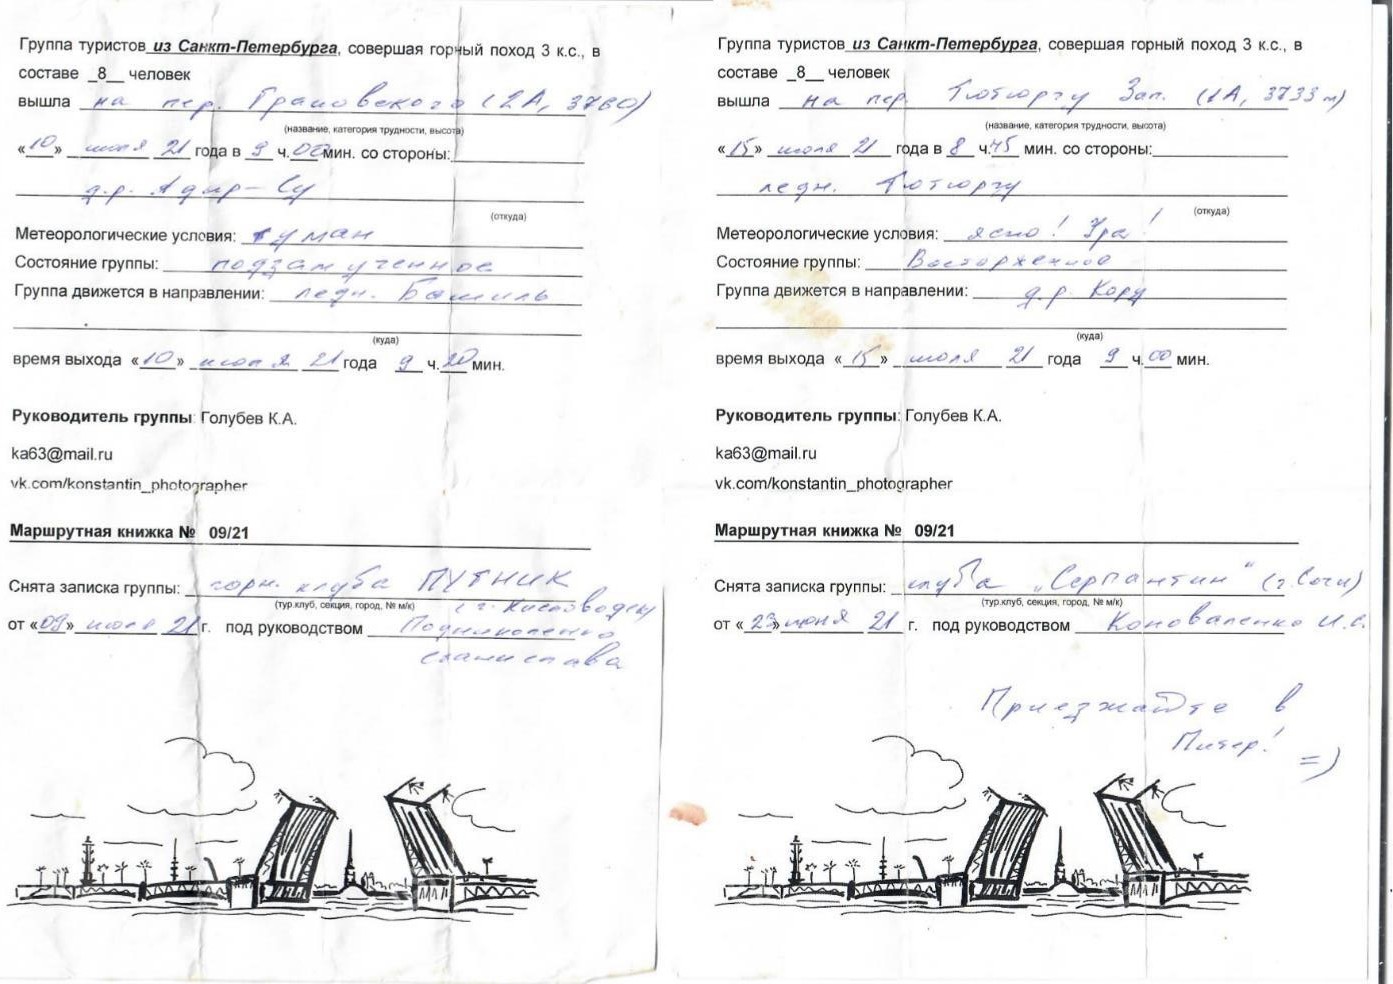 Группа туристов из Санкт-Петербурга, совершая горный поход 3 к.с., в
составе _8__ человек
вышла на пер. Грановского (2А, 3760)
(название, категория трудности, высота)
«10» июля 21 года в 9 ч. 00 мин. со стороны:
д.р. Адыр-Су
(откуда)
Метеорологические условия: туман
Состояние группы: подзамученное
Группа движется в направлении: ледн. Башиль
(куда)
время выхода «10» июля 21 года 9 ч. 20 мин.
Руководитель группы: Голубев К.А.
ka63@mail.ru
vk.com/konstantin_photographer
Маршрутная книжка № 09/21
Снята записка группы: горн. клуба ПУТНИК
(тур.клуб, секция, город, № м/к)
(г. Кисловодск)
от «09» июля 21 г. под руководством
Станислава
Группа туристов из Санкт-Петербурга, совершая горный поход 3 к.с., в
составе _8__ человек
вышла на пер. Тютюргу Зап. (1А, 3733 м)
(название, категория трудности, высота)
«15» июля 21 года в 8 ч. 45 мин. со стороны:
ледн. Тютюргу
(откуда)
Метеорологические условия: ясно! Ура!
Состояние группы: Восторженное
Группа движется в направлении: д.р. Корд
(куда)
время выхода «15» июля 21 года 9 ч. 00 мин.
Руководитель группы: Голубев К.А.
ka63@mail.ru
vk.com/konstantin_photographer
Маршрутная книжка № 09/21
Снята записка группы: клуба „Серпантин" (г. Сочи)
(тур.клуб, секция, город, № м/к)
от «23» июня 21 г. под руководством Коноваленко И.С.
Приезжайте в
Питер!
=)